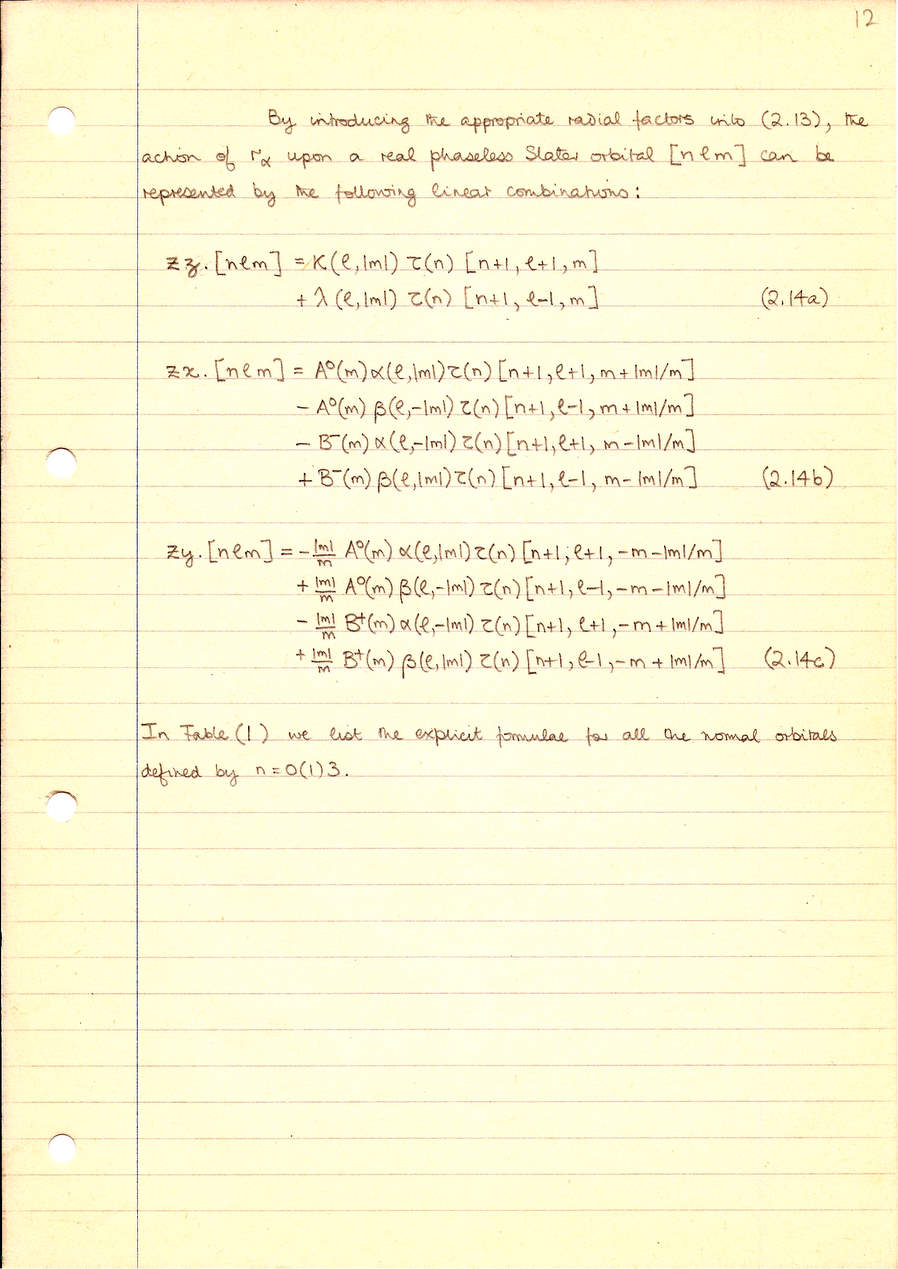 12
By introducing the appropriate radial factors into (2.13), the
action of rα upon a real phaseless Slater orbital [nℓm] can be
represented by the following linear combinations:
Zz.[nℓm] = K(ℓ,|m|) τ(n) [n+1, ℓ+1, m]
+ λ(ℓ,|m|) τ(n) [n+1, ℓ-1, m] (2.14a)
Zx.[nℓm] = A⁰(m) α(ℓ,|m|) τ(n) [n+1, ℓ+1, m+|m|/m]
- A⁰(m) β(ℓ,-|m|) τ(n) [n+1, ℓ-1, m+|m|/m]
- B⁻(m) α(ℓ,-|m|) τ(n) [n+1, ℓ+1, m-|m|/m]
+ B⁻(m) β(ℓ,|m|) τ(n) [n+1, ℓ-1, m-|m|/m] (2.14b)
Zy.[nℓm] = -|m|/m A⁰(m) α(ℓ,|m|) τ(n) [n+1, ℓ+1, -m-|m|/m]
+ |m|/m A⁰(m) β(ℓ,-|m|) τ(n) [n+1, ℓ-1, -m-|m|/m]
- |m|/m B⁺(m) α(ℓ,-|m|) τ(n) [n+1, ℓ+1, -m+|m|/m]
+ |m|/m B⁺(m) β(ℓ,|m|) τ(n) [n+1, ℓ-1, -m+|m|/m] (2.14c)
In Table (1) we list the explicit formulae for all the normal orbitals
defined by n=0(1)3.